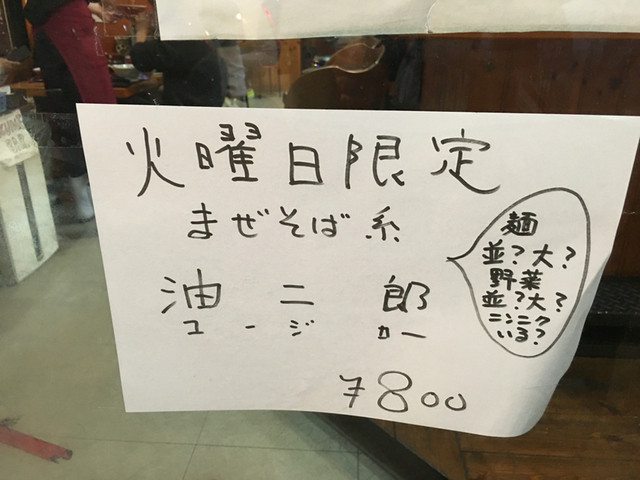 火曜日限定
まぜそば系
油二郎
ユージロー
¥800
麺
並?大?
野菜
並?大?
ニンニク
いる?